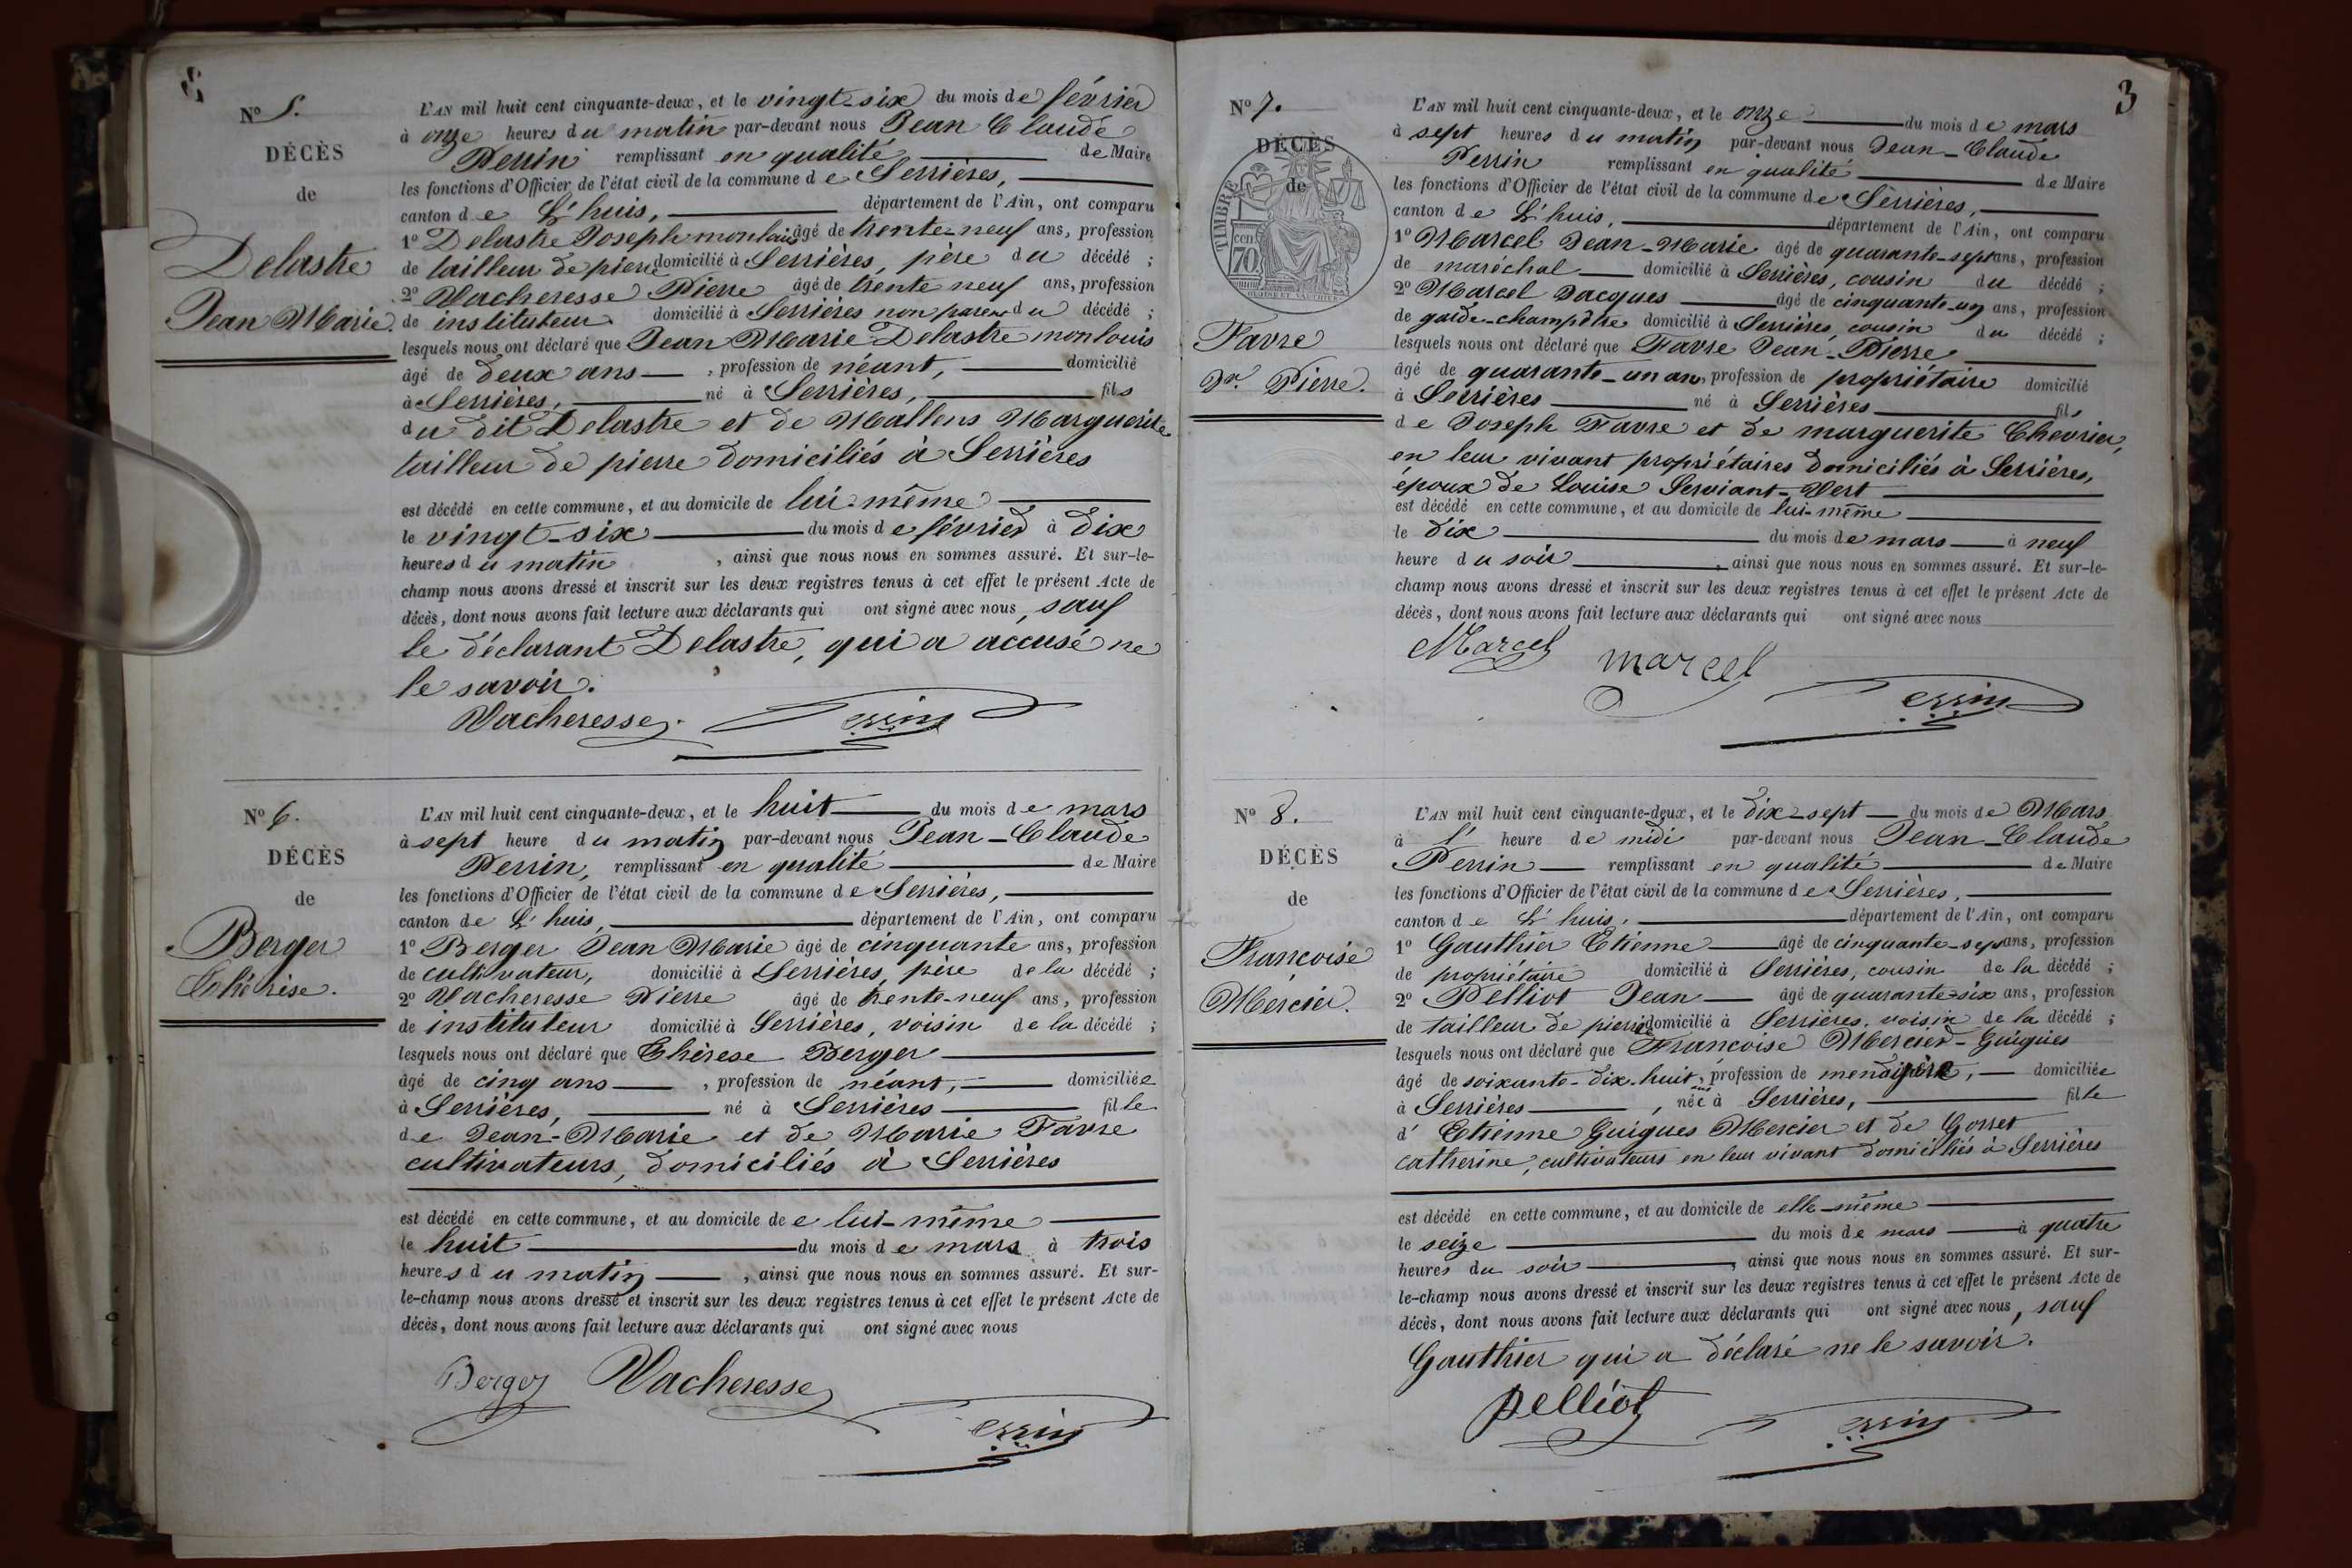 3
N° 5.
DÉCÈS
de
Delastre
Jean Marie.
L'AN mil huit cent cinquante-deux, et le vingt-six du mois de février
à onze heures du matin par-devant nous Jean Claude
Perrin remplissant en qualité de Maire
les fonctions d'Officier de l'état civil de la commune de Serrières,
canton de L'huis, département de l'Ain, ont comparu
1° Delastre Joseph monlouis âgé de trente-neuf ans, profession
de tailleur de pierre domicilié à Serrières, père du décédé ;
2° Vacheresse Pierre âgé de trente neuf ans, profession
de instituteur domicilié à Serrières non parent du décédé ;
lesquels nous ont déclaré que Jean Marie Delastre monlouis
âgé de deux ans , profession de néant, domicilié
à Serrières, né à Serrières, fils
du dit Delastre et de Mallens Marguerite
tailleur de pierre domiciliés à Serrières
est décédé en cette commune, et au domicile de lui-même
le vingt-six du mois de février à dix
heures du matin , ainsi que nous nous en sommes assuré. Et sur-le-
champ nous avons dressé et inscrit sur les deux registres tenus à cet effet le présent Acte de
décès, dont nous avons fait lecture aux déclarants qui ont signé avec nous, sauf
le déclarant Delastre, qui a accusé ne
le savoir.
Vacheresse Perrin
N° 6.
DÉCÈS
de
Berger
Thérèse.
L'AN mil huit cent cinquante-deux, et le huit du mois de mars
à sept heure du matin par-devant nous Jean-Claude
Perrin, remplissant en qualité de Maire
les fonctions d'Officier de l'état civil de la commune de Serrières,
canton de L'huis, département de l'Ain, ont comparu
1° Berger Jean Marie âgé de cinquante ans, profession
de cultivateur, domicilié à Serrières, père de la décédé ;
2° Vacheresse Pierre âgé de trente-neuf ans, profession
de instituteur domicilié à Serrières, voisin de la décédé ;
lesquels nous ont déclaré que Thérèse Berger
âgé de cinq ans , profession de néant, domiciliée
à Serrières, né à Serrières fille
de Jean-Marie et de Marie Favre
cultivateurs, domiciliés à Serrières
est décédé en cette commune, et au domicile de e lui-même
le huit du mois de mars à trois
heures du matin , ainsi que nous nous en sommes assuré. Et sur-
le-champ nous avons dressé et inscrit sur les deux registres tenus à cet effet le présent Acte de
décès, dont nous avons fait lecture aux déclarants qui ont signé avec nous
Berger Vacheresse
Perrin
3
N° 7.
DÉCÈS
de
TIMBRE
70
Favre
Jn. Pierre.
L'AN mil huit cent cinquante-deux, et le onze du mois de mars
à sept heures du matin par-devant nous Jean-Claude
Perrin remplissant en qualité de Maire
les fonctions d'Officier de l'état civil de la commune de Serrières,
canton de L'huis, département de l'Ain, ont comparu
1° Marcel Jean-Marie âgé de quarante-sept ans, profession
de maréchal domicilié à Serrières, cousin du décédé ;
2° Marcel Jacques âgé de cinquante-un ans, profession
de garde-champêtre domicilié à Serrières, cousin du décédé ;
lesquels nous ont déclaré que Favre Jean-Pierre
âgé de quarante-un an, profession de propriétaire domicilié
à Serrières né à Serrières fils
de Joseph Favre et de marguerite Chevrier,
en leur vivant propriétaires domiciliés à Serrières,
époux de Louise Serviant-Vert
est décédé en cette commune, et au domicile de lui-même
le dix du mois de mars à neuf
heure du soir , ainsi que nous nous en sommes assuré. Et sur-le-
champ nous avons dressé et inscrit sur les deux registres tenus à cet effet le présent Acte de
décès, dont nous avons fait lecture aux déclarants qui ont signé avec nous
Marcel marcel
Perrin
N° 8.
DÉCÈS
de
Françoise
Mercier.
L'AN mil huit cent cinquante-deux, et le dix-sept du mois de Mars
à l' heure de midi par-devant nous Jean-Claude
Perrin remplissant en qualité de Maire
les fonctions d'Officier de l'état civil de la commune de Serrières,
canton de L'huis, département de l'Ain, ont comparu
1° Gauthier Etienne âgé de cinquante-sept ans, profession
de propriétaire domicilié à Serrières, cousin de la décédé ;
2° Pelliot Jean âgé de quarante-six ans, profession
de tailleur de pierre domicilié à Serrières, voisin de la décédé ;
lesquels nous ont déclaré que Françoise Mercier-Guigues
âgé de soixante-dix-huit ans, profession de menagère, domiciliée
à Serrières , née à Serrières, fille
d' Etienne Guigues Mercier et de Gorret
catherine, cultivateurs en leur vivant domiciliés à Serrières
est décédé en cette commune, et au domicile de elle-même
le seize du mois de mars à quatre
heures du soir , ainsi que nous nous en sommes assuré. Et sur-
le-champ nous avons dressé et inscrit sur les deux registres tenus à cet effet le présent Acte de
décès, dont nous avons fait lecture aux déclarants qui ont signé avec nous, sauf
Gauthier qui a déclaré ne le savoir.
pelliot Perrin